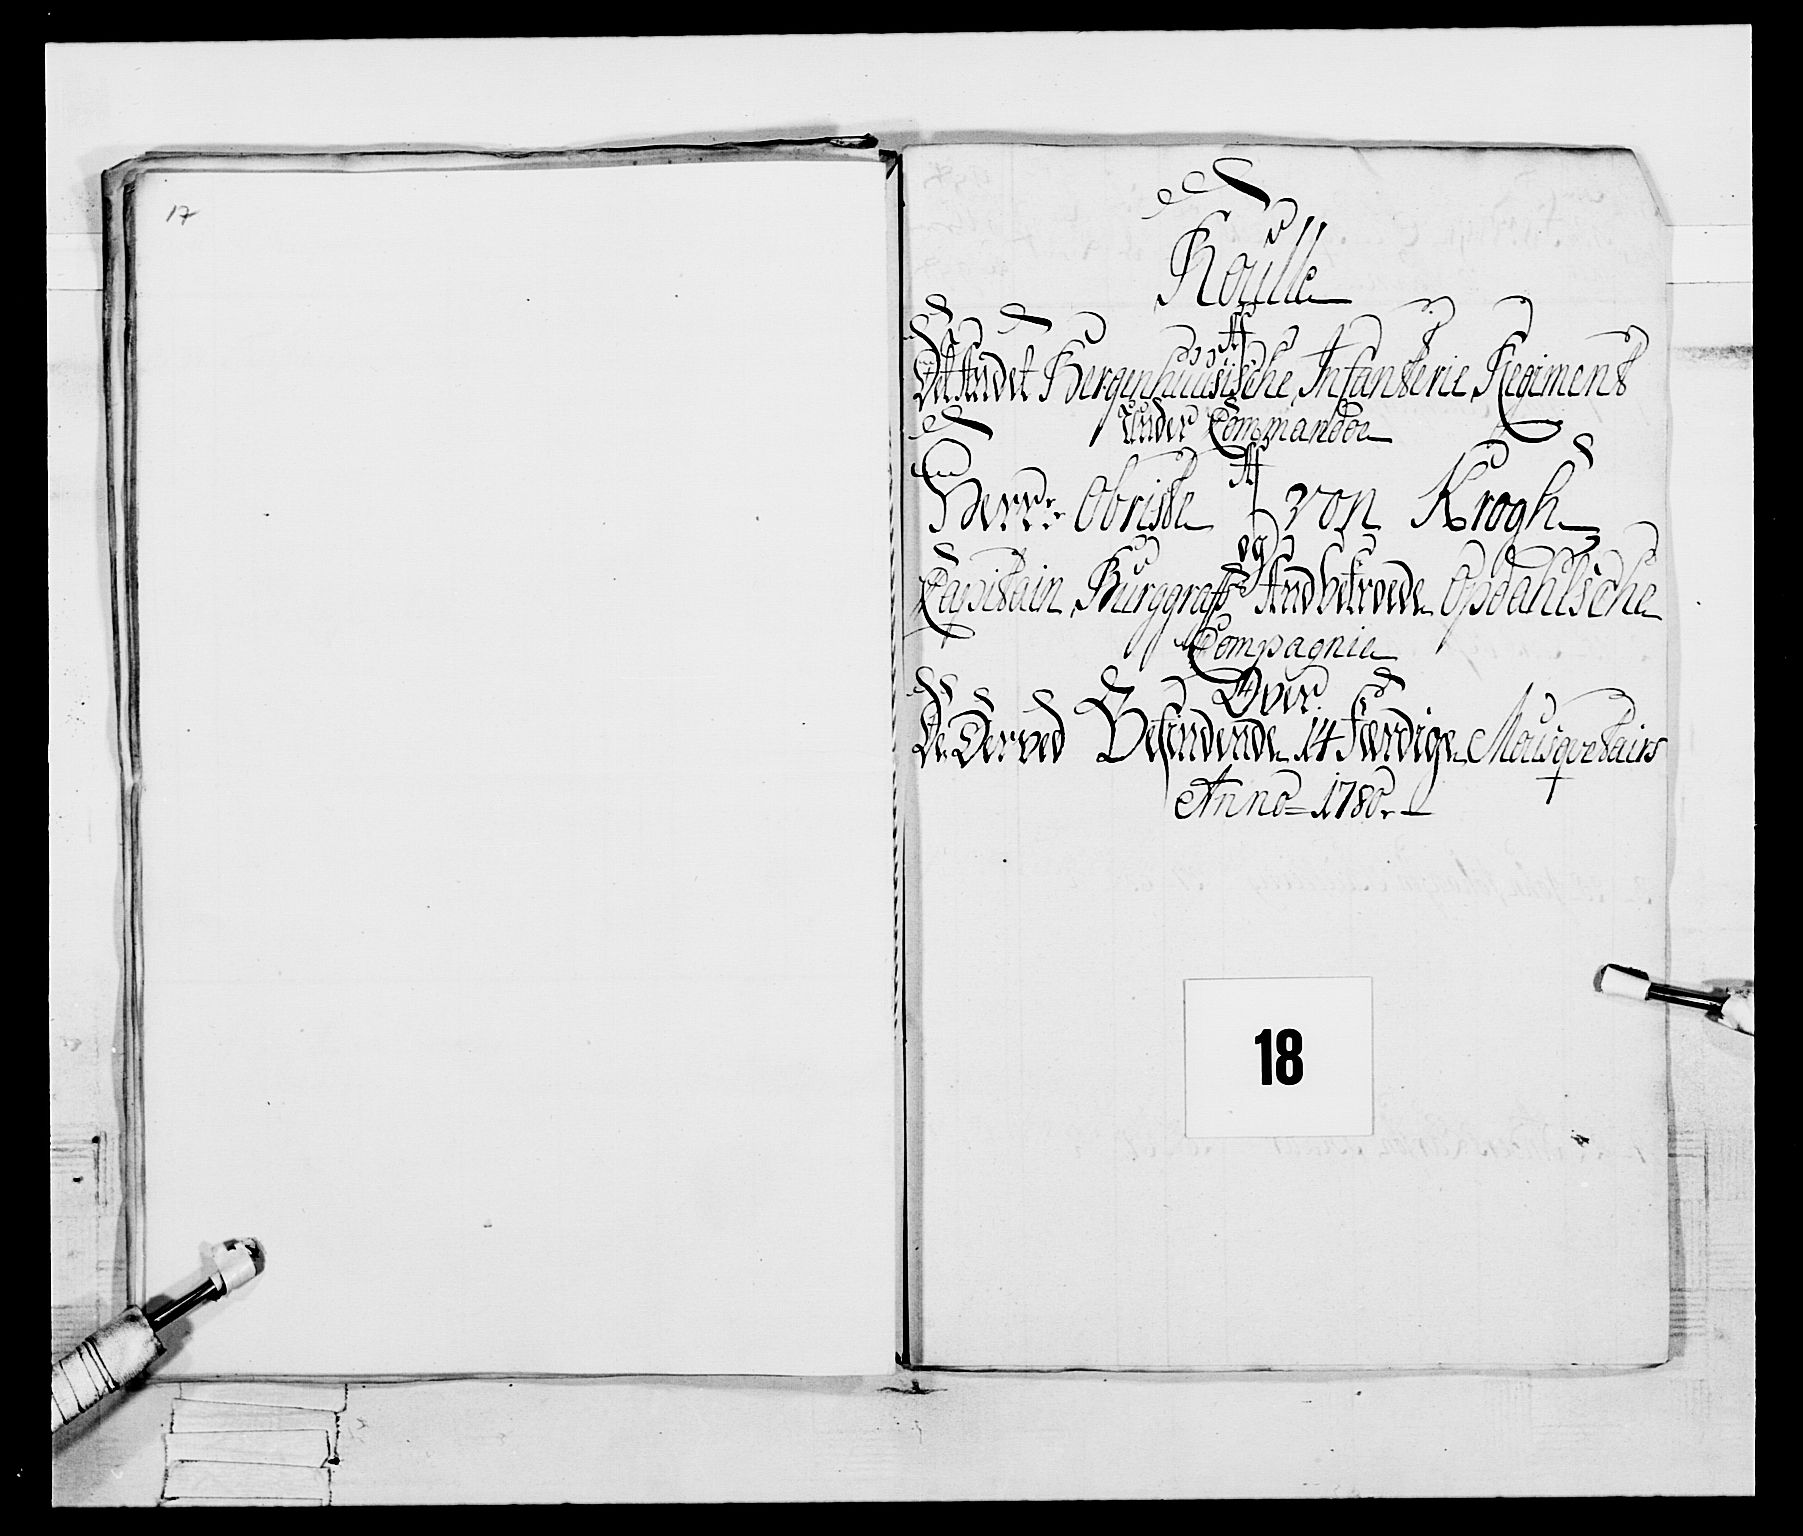 17
Roulle
Af
Det Andet Bergenhuusische Infanterie Regiment
Under Commando
Af
Herr Obriste von Krogh
og
Capitain Burggraff Andbetroede Opdahlsche
Compagnie
Over
De Derved Befindende 14 Færdige Mousqvetairs
Anno 1780.
18